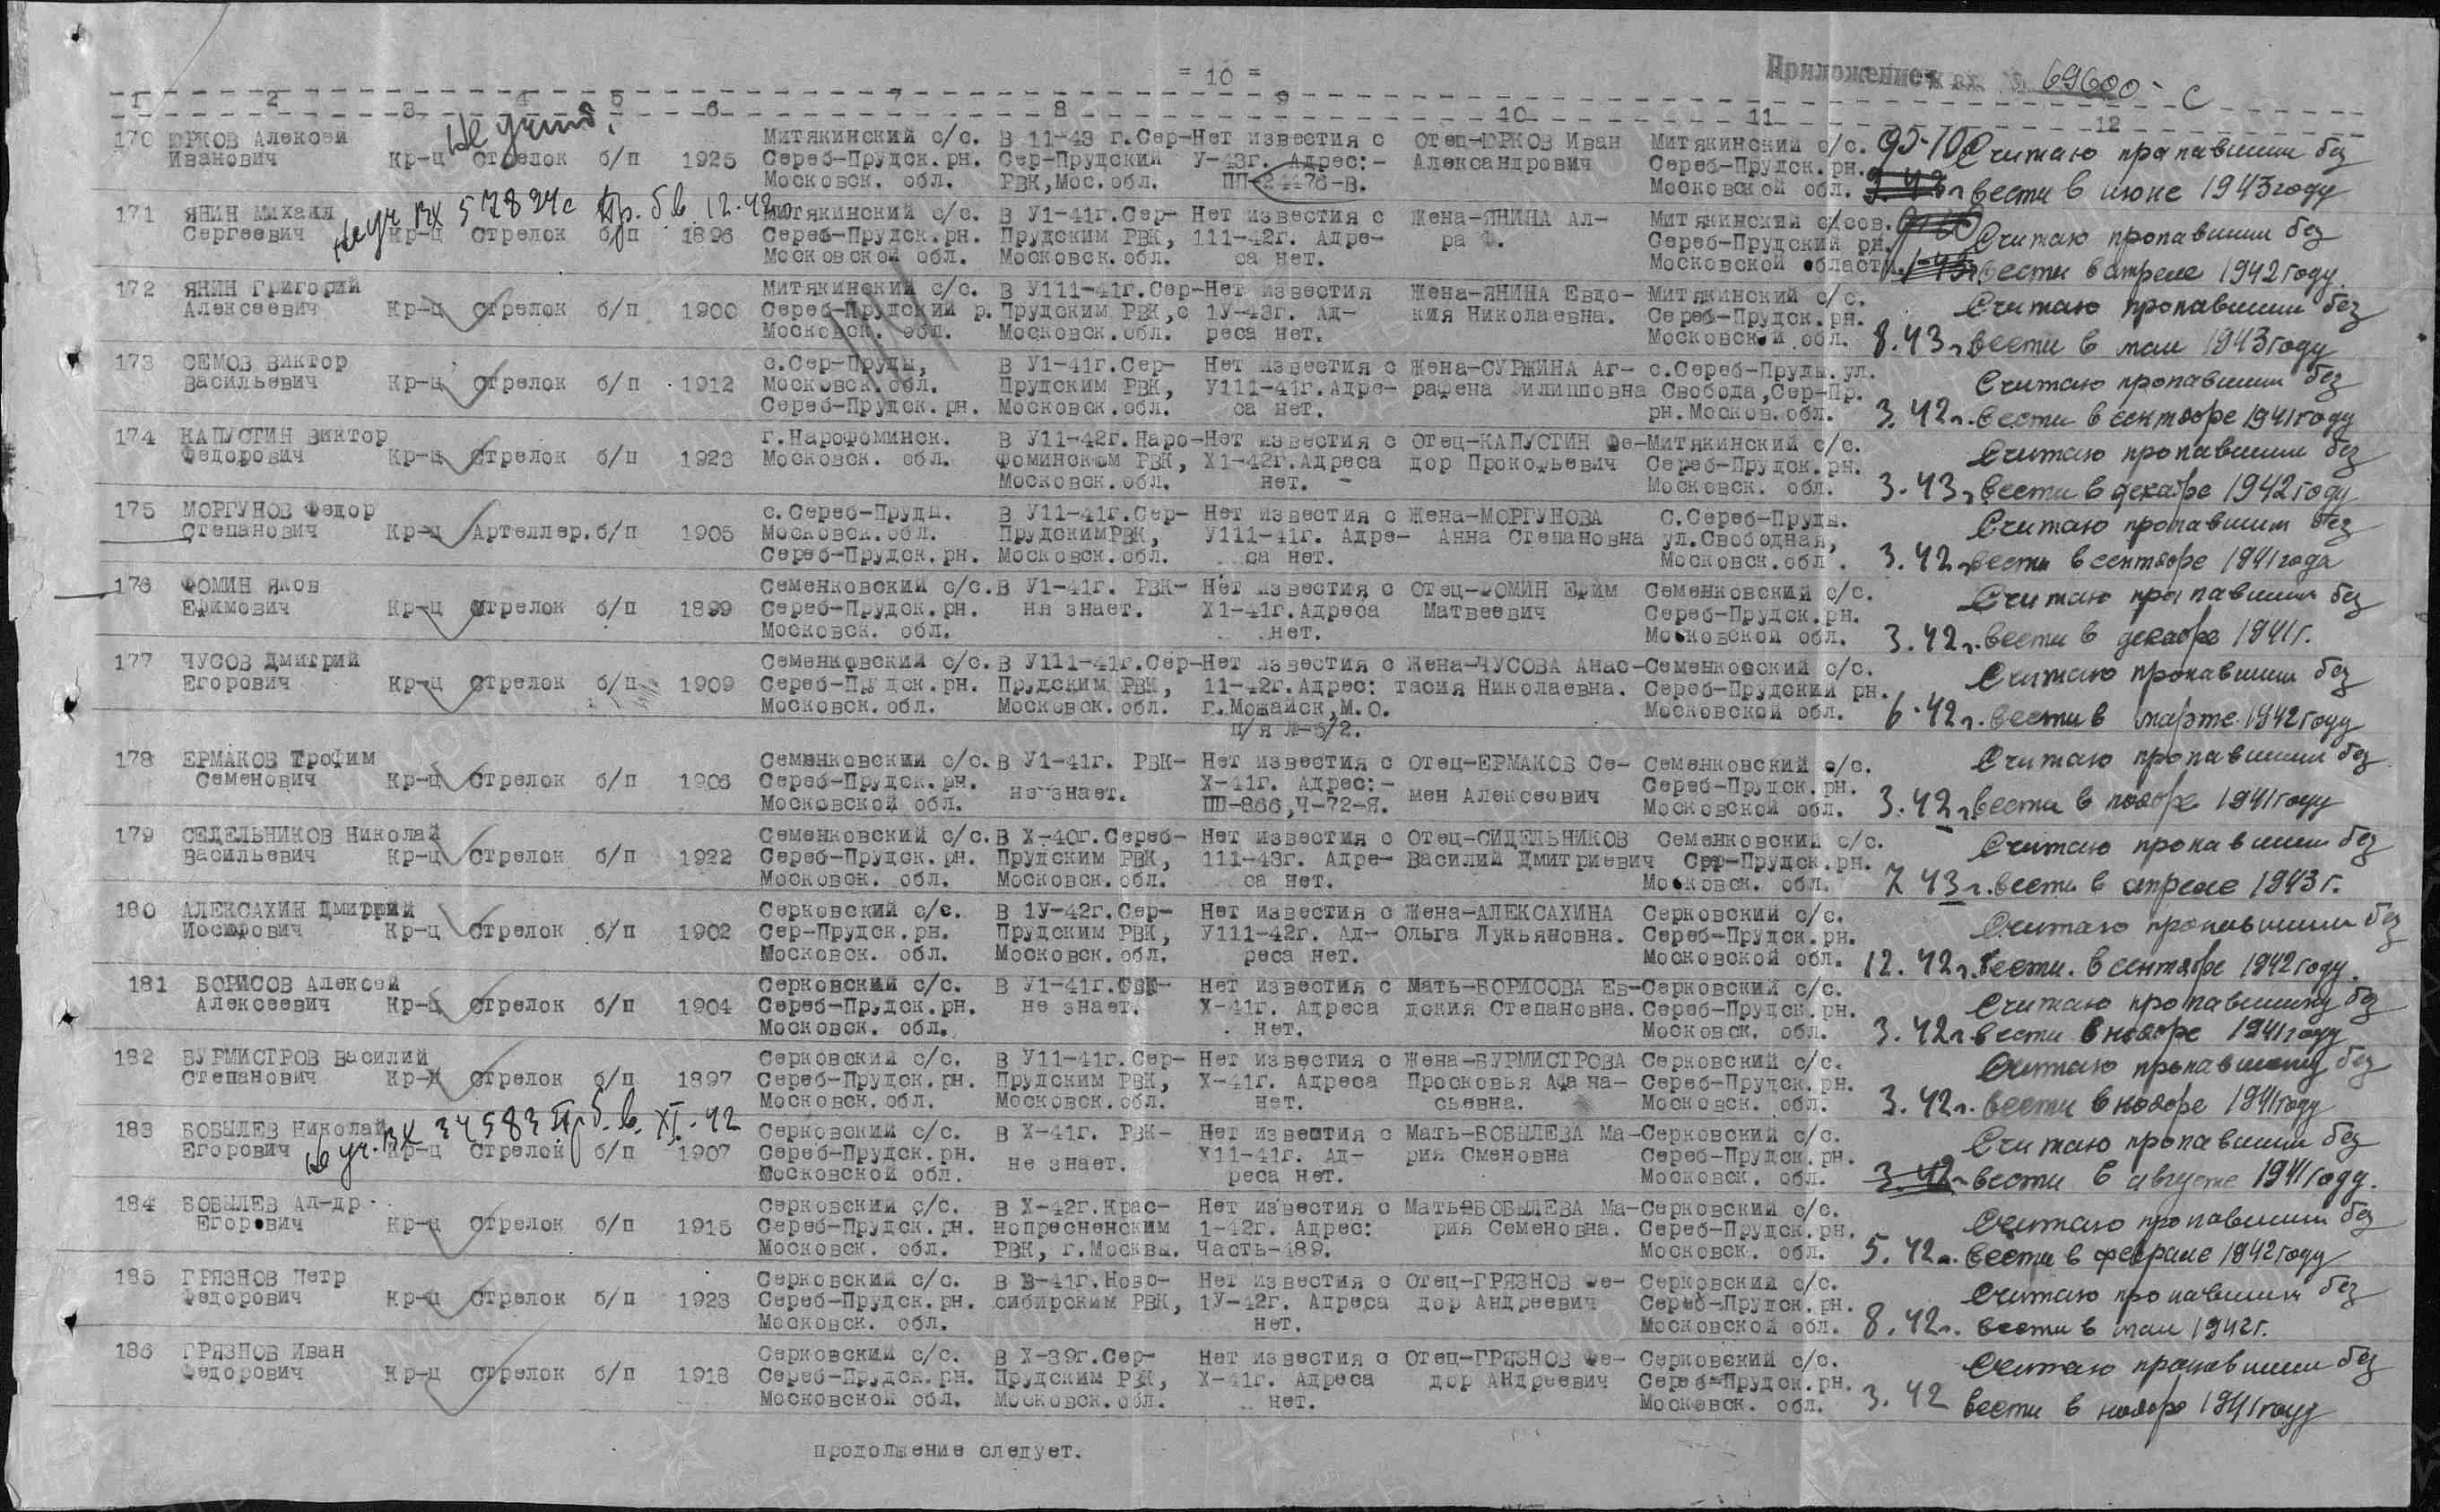 = 10 =
Приложение к вх. № 69600-с
1 2 3 4 5 6 7 8 9 10 11 12
Не учит.
170 ЮРКОВ Алексей Митякинский с/с. В 11-43 г.Сер- Нет известия с Отец-ЮРКОВ Иван Митякинский с/с. Считаю пропавшим без
Иванович Кр-ц Стрелок б/п 1925 Сереб-Прудск.рн. Сер-Прудский У-43г. Адрес:- Александрович Сереб-Прудск.рн.
Московск. обл. РВК,Мос.обл. ПП-24476-В. Московской обл. вести в июне 1943 году
Не уч Вх 57824с Пр. б в 12.42г
171 ЯНИН Михаил Митякинский с/с. В У1-41г.Сер- Нет известия с Жена-ЯНИНА Ал- Митякинский с/сов. Считаю пропавшим без
Сергеевич Кр-ц Стрелок б/п 1896 Сереб-Прудск.рн. Прудским РВК, 111-42г. Адре- ра Ф. Сереб-Прудский рн.
Московской обл. Московск.обл. са нет. Московской области. вести в апреле 1942 году.
172 ЯНИН Григорий Митякинский с/с. В У111-41г.Сер- Нет известия Жена-ЯНИНА Евдо- Митякинский с/с. Считаю пропавшим без
Алексеевич Кр-ц Стрелок б/п 1900 Сереб-Прудский р. Прудским РВК, с 1У-43г. Ад- кия Николаевна. Сереб-Прудск.рн.
Московск. обл. Московск.обл. реса нет. Московской обл. 8.43г. вести в мае 1943 году
173 СЕМОВ Виктор с.Сер-Пруды, В У1-41г.Сер- Нет известия с Жена-СУРЖИНА Аг- с.Сереб-Пруды.ул. Считаю пропавшим без
Васильевич Кр-ц Стрелок б/п 1912 Московск.обл. Прудским РВК, У111-41г.Адре- рафена Филипповна Свобода,Сер-Пр.
Сереб-Прудск.рн. Московск.обл. са нет. рн.Москов.обл. 3.42г. вести в сентябре 1941 году
174 КАПУСТИН Виктор г.Нарофоминск. В У11-42г.Наро- Нет известия с Отец-КАПУСТИН Фе- Митякинский с/с. Считаю пропавшим без
Федорович Кр-ц Стрелок б/п 1923 Московск. обл. Фоминском РВК, Х1-42г.Адреса дор Прокофьевич Сереб-Прудск.рн.
Московск.обл. нет. - Московск. обл. 3.43г. вести в декабре 1942 году
175 МОРГУНОВ Федор с.Сереб-Пруды. В У11-41г.Сер- Нет известия с Жена-МОРГУНОВА С.Сереб-Пруды. Считаю пропавшим без
Степанович Кр-ц Артеллер. б/п 1905 Московск.обл. ПрудскимРВК, У111-41г. Адре- Анна Степановна ул.Свободная,
Сереб-Прудск.рн. Московск.обл. са нет. Московск.обл. 3.42г. вести в сентябре 1941 года
176 ФОМИН Яков Семенковский с/с. В У1-41г. РВК- Нет известия с Отец-ФОМИН Ефим Семенковский с/с. Считаю пропавшим без
Ефимович Кр-ц Стрелок б/п 1899 Сереб-Прудск.рн. не знает. Х1-41г.Адреса Матвеевич Сереб-Прудск.рн.
Московск. обл. нет. Московской обл. 3.42г. вести в декабре 1941г.
177 ЧУСОВ Дмитрий Семенковский с/с. В У111-41г.Сер- Нет известия с Жена-ЧУСОВА Анас- Семенковский с/с. Считаю пропавшим без
Егорович Кр-ц Стрелок б/п 1909 Сереб-Прудск.рн. Прудским РВК, 11-42г.Адрес: тасия Николаевна. Сереб-Прудский рн.
Московск.обл. Московск.обл. г.Можайск,М.О. Московской обл. 6.42г. вести в марте 1942 году
п/я Л-5/2.
178 ЕРМАКОВ Трофим Семенковский с/с. В У1-41г. РВК- Нет известия с Отец-ЕРМАКОВ Се- Семенковский с/с. Считаю пропавшим без
Семенович Кр-ц Стрелок б/п 1906 Сереб-Прудск.рн. не знает. Х-41г. Адрес:- мен Алексеевич Сереб-Прудск.рн.
Московской обл. ПП-866,Ч-72-Я. Московской обл. 3.42г. вести в ноябре 1941 году
179 СЕДЕЛЬНИКОВ Николай Семенковский с/с. В Х-40г.Сереб- Нет известия с Отец-СИДЕЛЬНИКОВ Семенковский с/с. Считаю пропавшим без
Васильевич Кр-ц Стрелок б/п 1922 Сереб-Прудск.рн. Прудским РВК, 111-43г. Адре- Василий Дмитриевич Сер-Прудск.рн.
Московск. обл. Московск.обл. са нет. Московск. обл. 7 43г. вести в апреле 1943г.
180 АЛЕКСАХИН Дмитрий Серковский с/с. В 1У-42г.Сер- Нет известия с Жена-АЛЕКСАХИНА Серковский с/с. Считаю пропавшим без
Иосифович Кр-ц Стрелок б/п 1902 Сер-Прудск.рн. Прудским РВК, У111-42г. Ад- Ольга Лукьяновна. Сереб-Прудск.рн.
Московск. обл. Московск.обл. реса нет. Московской обл. 12.42г. вести в сентябре 1942 году.
181 БОРИСОВ Алексей Серковский с/с. В У1-41г.РВК- Нет известия с Мать-БОРИСОВА Ев- Серковский с/с. Считаю пропавшим без
Алексеевич Кр-ц Стрелок б/п 1904 Сереб-Прудск.рн. не знает. Х-41г. Адреса докия Степановна. Сереб-Прудск.рн.
Московск. обл. нет. Московск. обл. 3.42г. вести в ноябре 1941 году
182 БУРМИСТРОВ Василий Серковский с/с. В У11-41г.Сер- Нет известия с Жена-БУРМИСТРОВА Серковский с/с. Считаю пропавшим без
Степанович Кр-ц Стрелок б/п 1897 Сереб-Прудск.рн. Прудским РВК, Х-41г. Адреса Просковья Афана- Сереб-Прудск.рн.
Московск.обл. Московск.обл. нет. сьевна. Московск. обл. 3.42г. вести в ноябре 1941 году
Не уч. Вх 34583 Пр б. в. XI.-42
183 БОБЫЛЕВ Николай Серковский с/с. В Х-41г. РВК- Нет известия с Мать-БОБЫЛЕВА Ма- Серковский с/с. Считаю пропавшим без
Егорович Кр-ц Стрелок б/п 1907 Сереб-Прудск.рн. не знает. Х11-41г. Ад- рия Сменовна Сереб-Прудск.рн.
Московской обл. реса нет. Московск. обл. 3.42г вести в августе 1941 году.
184 БОБЫЛЕВ Ал-др Серковский с/с. В Х-42г.Крас- Нет известия с Мать-БОБЫЛЕВА Ма- Серковский с/с. Считаю пропавшим без
Егорович Кр-ц Стрелок б/п 1915 Сереб-Прудск.рн. нопресненским 1-42г. Адрес: рия Семеновна. Сереб-Прудск.рн.
Московск. обл. РВК, г.Москвы. Часть-489. Московск. обл. 5.42г. вести в феврале 1942 году
185 ГРЯЗНОВ Петр Серковский с/с. В Х-41г.Ново- Нет известия с Отец-ГРЯЗНОВ Фе- Серковский с/с. Считаю пропавшим без
Федорович Кр-ц Стрелок б/п 1923 Сереб-Прудск.рн. сибирским РВК, 1У-42г. Адреса дор Андреевич Сереб-Прудск.рн.
Московск. обл. нет. Московской обл. 8.42г. вести в мае 1942г.
186 ГРЯЗНОВ Иван Серковский с/с. В Х-39г.Сер- Нет известия с Отец-ГРЯЗНОВ Фе- Серковский с/с. Считаю пропавшим без
Федорович Кр-ц Стрелок б/п 1918 Сереб-Прудск.рн. Прудским РВК, Х-41г. Адреса дор Андреевич Сереб-Прудск.рн.
Московской обл. Московск.обл. нет. Московск. обл. 3.42 вести в ноябре 1941 году
продолжение следует.